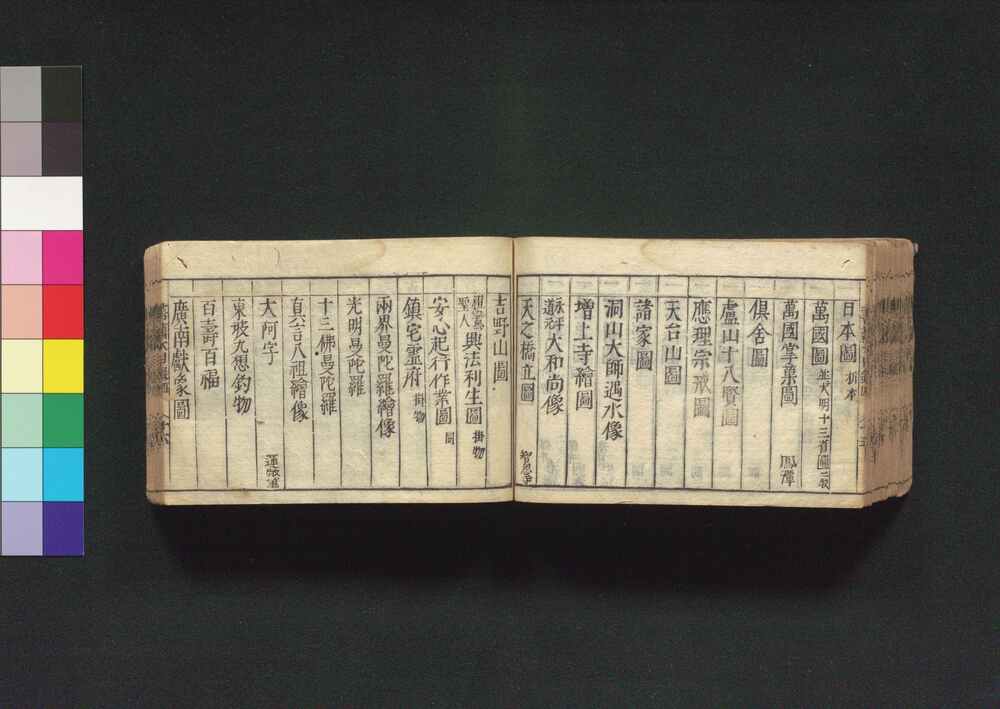 日本圖 折本
萬國圖 並大明十三省圖二枚
萬國掌菓圖 鳳潭
倶舍圖
盧山十八賢圖
應理宗戒圖
天台山圖
諸家圖
洞山大師過水像
增上寺繪圖
大和尚像
天之橋立圖
吉野山圖
聖人 興法利生圖 掛物
安心起行作業圖 同
鎮宅霊府 掛物
兩界曼陀羅繪像
光明曼陀羅
十三佛曼陀羅
真言八祖繪像
大阿字
東坡九想釣物
百壽百福
廣南獻象圖